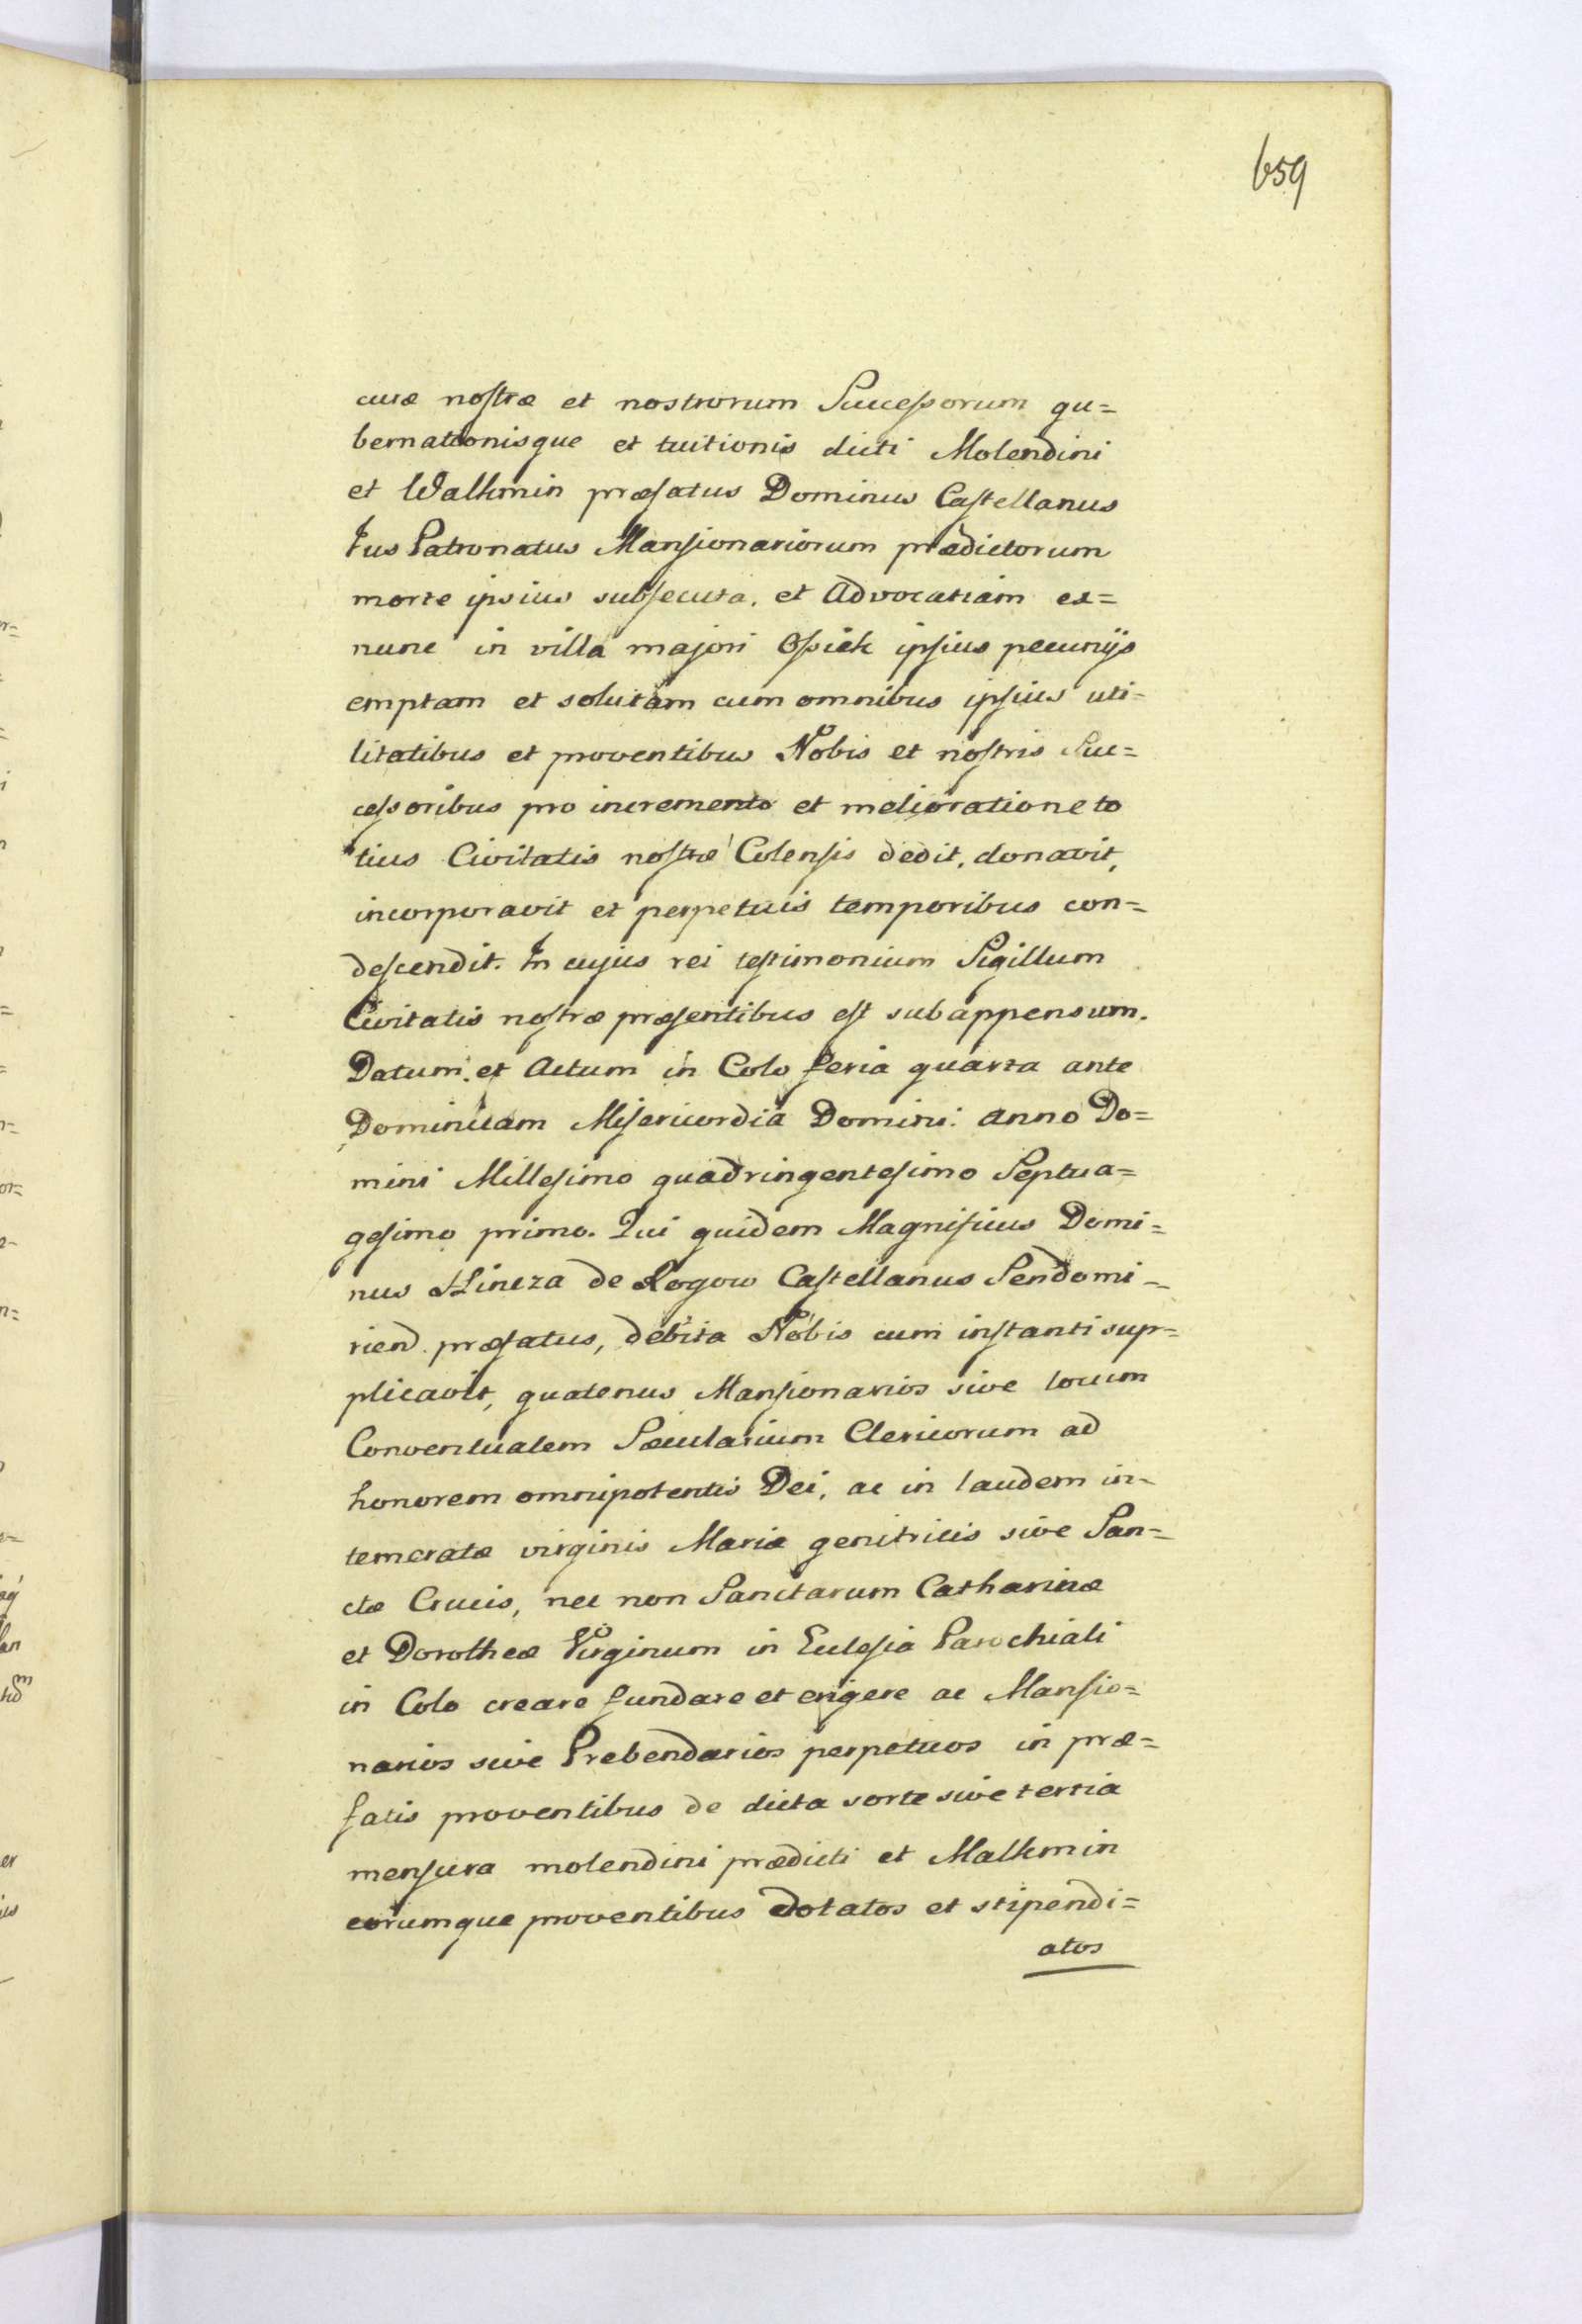 659
curæ nostræ et nostrorum Successorum gu=
bernationisque et tuitionis dicti Molendini
et Walkmin præfatus Dominus Castellanus
Jus Patronatus Mansionariorum prædictorum
morte ipsius subsecuta, et Advocatiam ex=
nunc in villa majori Osiek ipsius pecunijs
emptam et solutam cum omnibus ipsius uti=
litatibus et proventibus Nobis et nostris Suc=
cessoribus pro incremento et melioratione to
tius Civitatis nostræ Colensis dedit, donavit,
incorporavit et perpetuis temporibus con=
descendit. In cujus rei testimonium Sigillum
Civitatis nostræ præsentibus est subappensum.
Datum et Actum in Colo feria quarta ante
Dominicam Misericordia Domini: anno Do=
mini Millesimo quadringentesimo Septua=
gesimo primo. Qui quidem Magnificus Domi=
nus Hincza de Rogow Castellanus Sendomi=
riend præfatus, debita Nobis cum instanti sup=
plicavit, quatenus Mansionarios sive locum
Conventualem Sæcularium Clericorum ad
honorem omnipotentis Dei, ac in laudem in=
temeratæ virginis Mariæ genitricis sive San=
ctæ Crucis, nec non Sanctarum Catharinæ
et Dorotheæ Virginum in Eclesia Parochiali
in Colo creare fundare et erigere ac Mansio=
narios sive Prebendarios perpetuos in præ=
fatis proventibus de dicta sorte sive tertia
mensura molendini prædicti et Malkmin
eorumque proventibus dotatos et stipendi=
atos